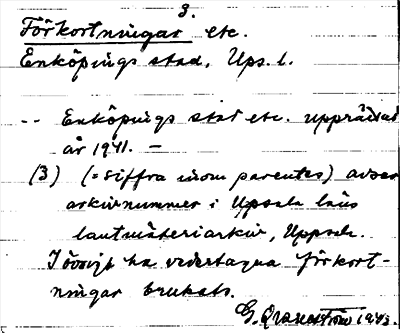 3.
Förkortningar etc.
Enköpings stad, Ups. l.
-- Enköpings stad etc. upprättad
år 1941. —
(3) (= siffra inom parentes) avser
arkivnummer i Upsala läns
lantmäteriarkiv, Uppsala.
I övrigt ha vedertagna förkort-
ningar brukats.
G. 1943.